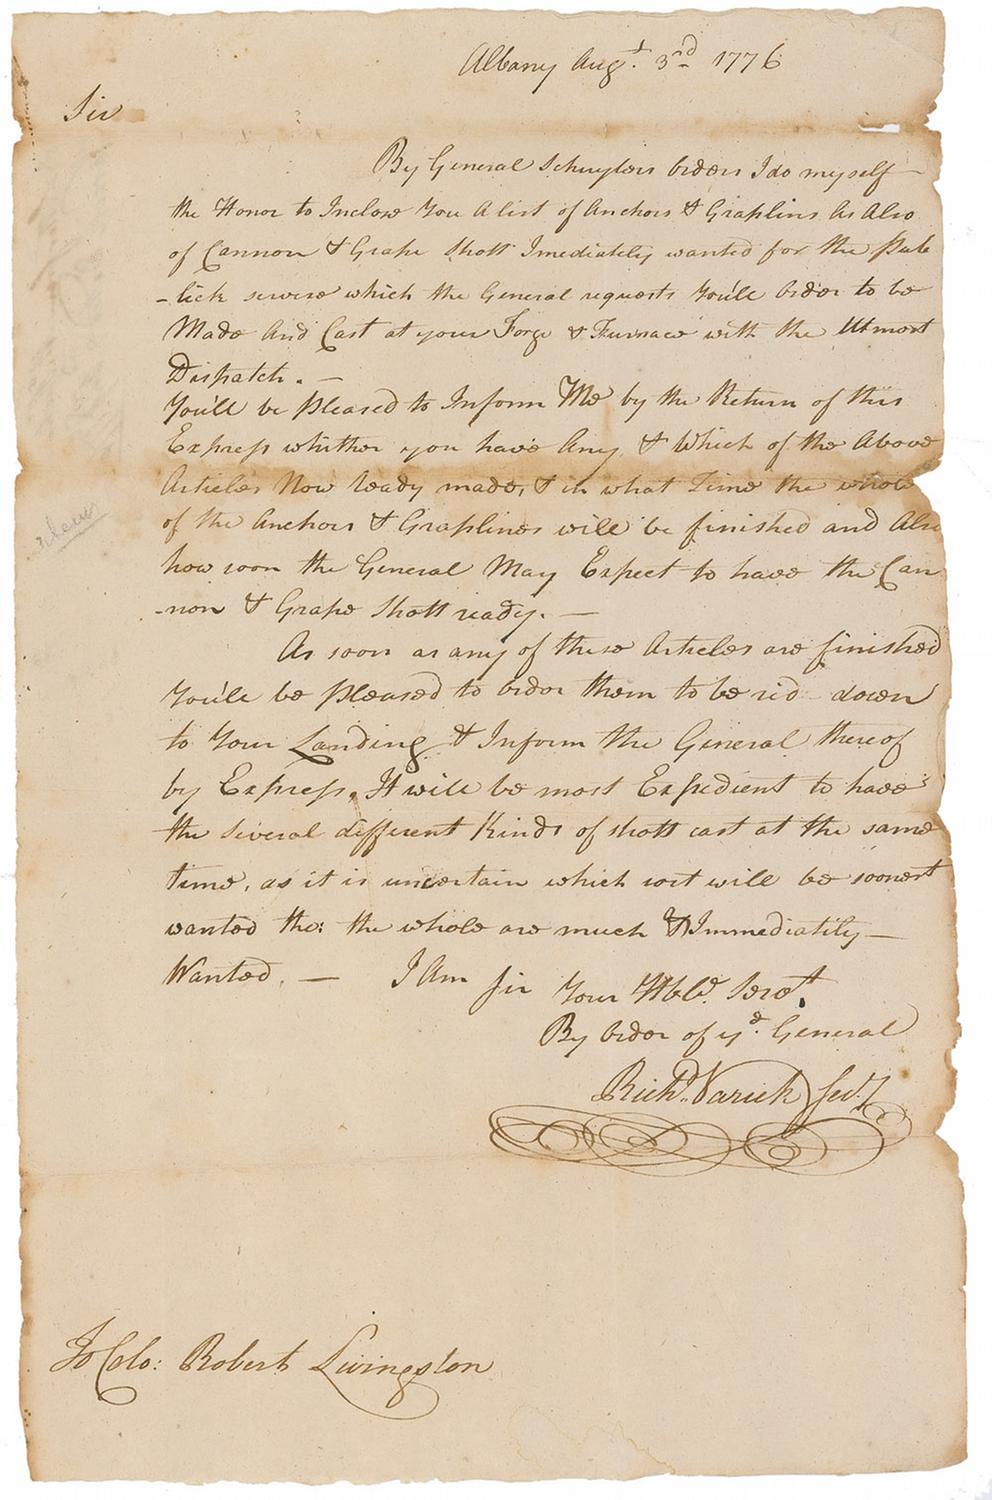 Albany Augt. 3rd 1776
Sir
By General Schuylers orders I do myself
the Honor to Inclose You A list of Anchors & Graplins As Also
of Cannon & Grape Shott Imediately wanted for the Pub
-lick service which the General requests You'll order to be
Made And Cast at your Forge & Furnace with the Utmost
Dispatch. —
You'll be pleased to Inform Me by the Return of this
Express whither you have Any & Which of the Above
Articles Now ready made, & in what Time the whole
of the Anchors & Graplines will be finished and Also
how soon the General May Expect to have the Can
-non & Grape Shott ready. —
As soon as any of these Articles are finished
You'le be pleased to order them to be rid down
to Your Landing & Inform the General thereof
by Express. It will be most Expedient to have
the several different Kinds of shott cast at the same
time, as it is uncertain which sort will be soonest
wanted tho: the whole are much & Immediatily —
Wanted. — I Am Sir Your Hble. Servt.
By order of ye. General
Richd. Varick Secy
To Colo: Robert Livingston